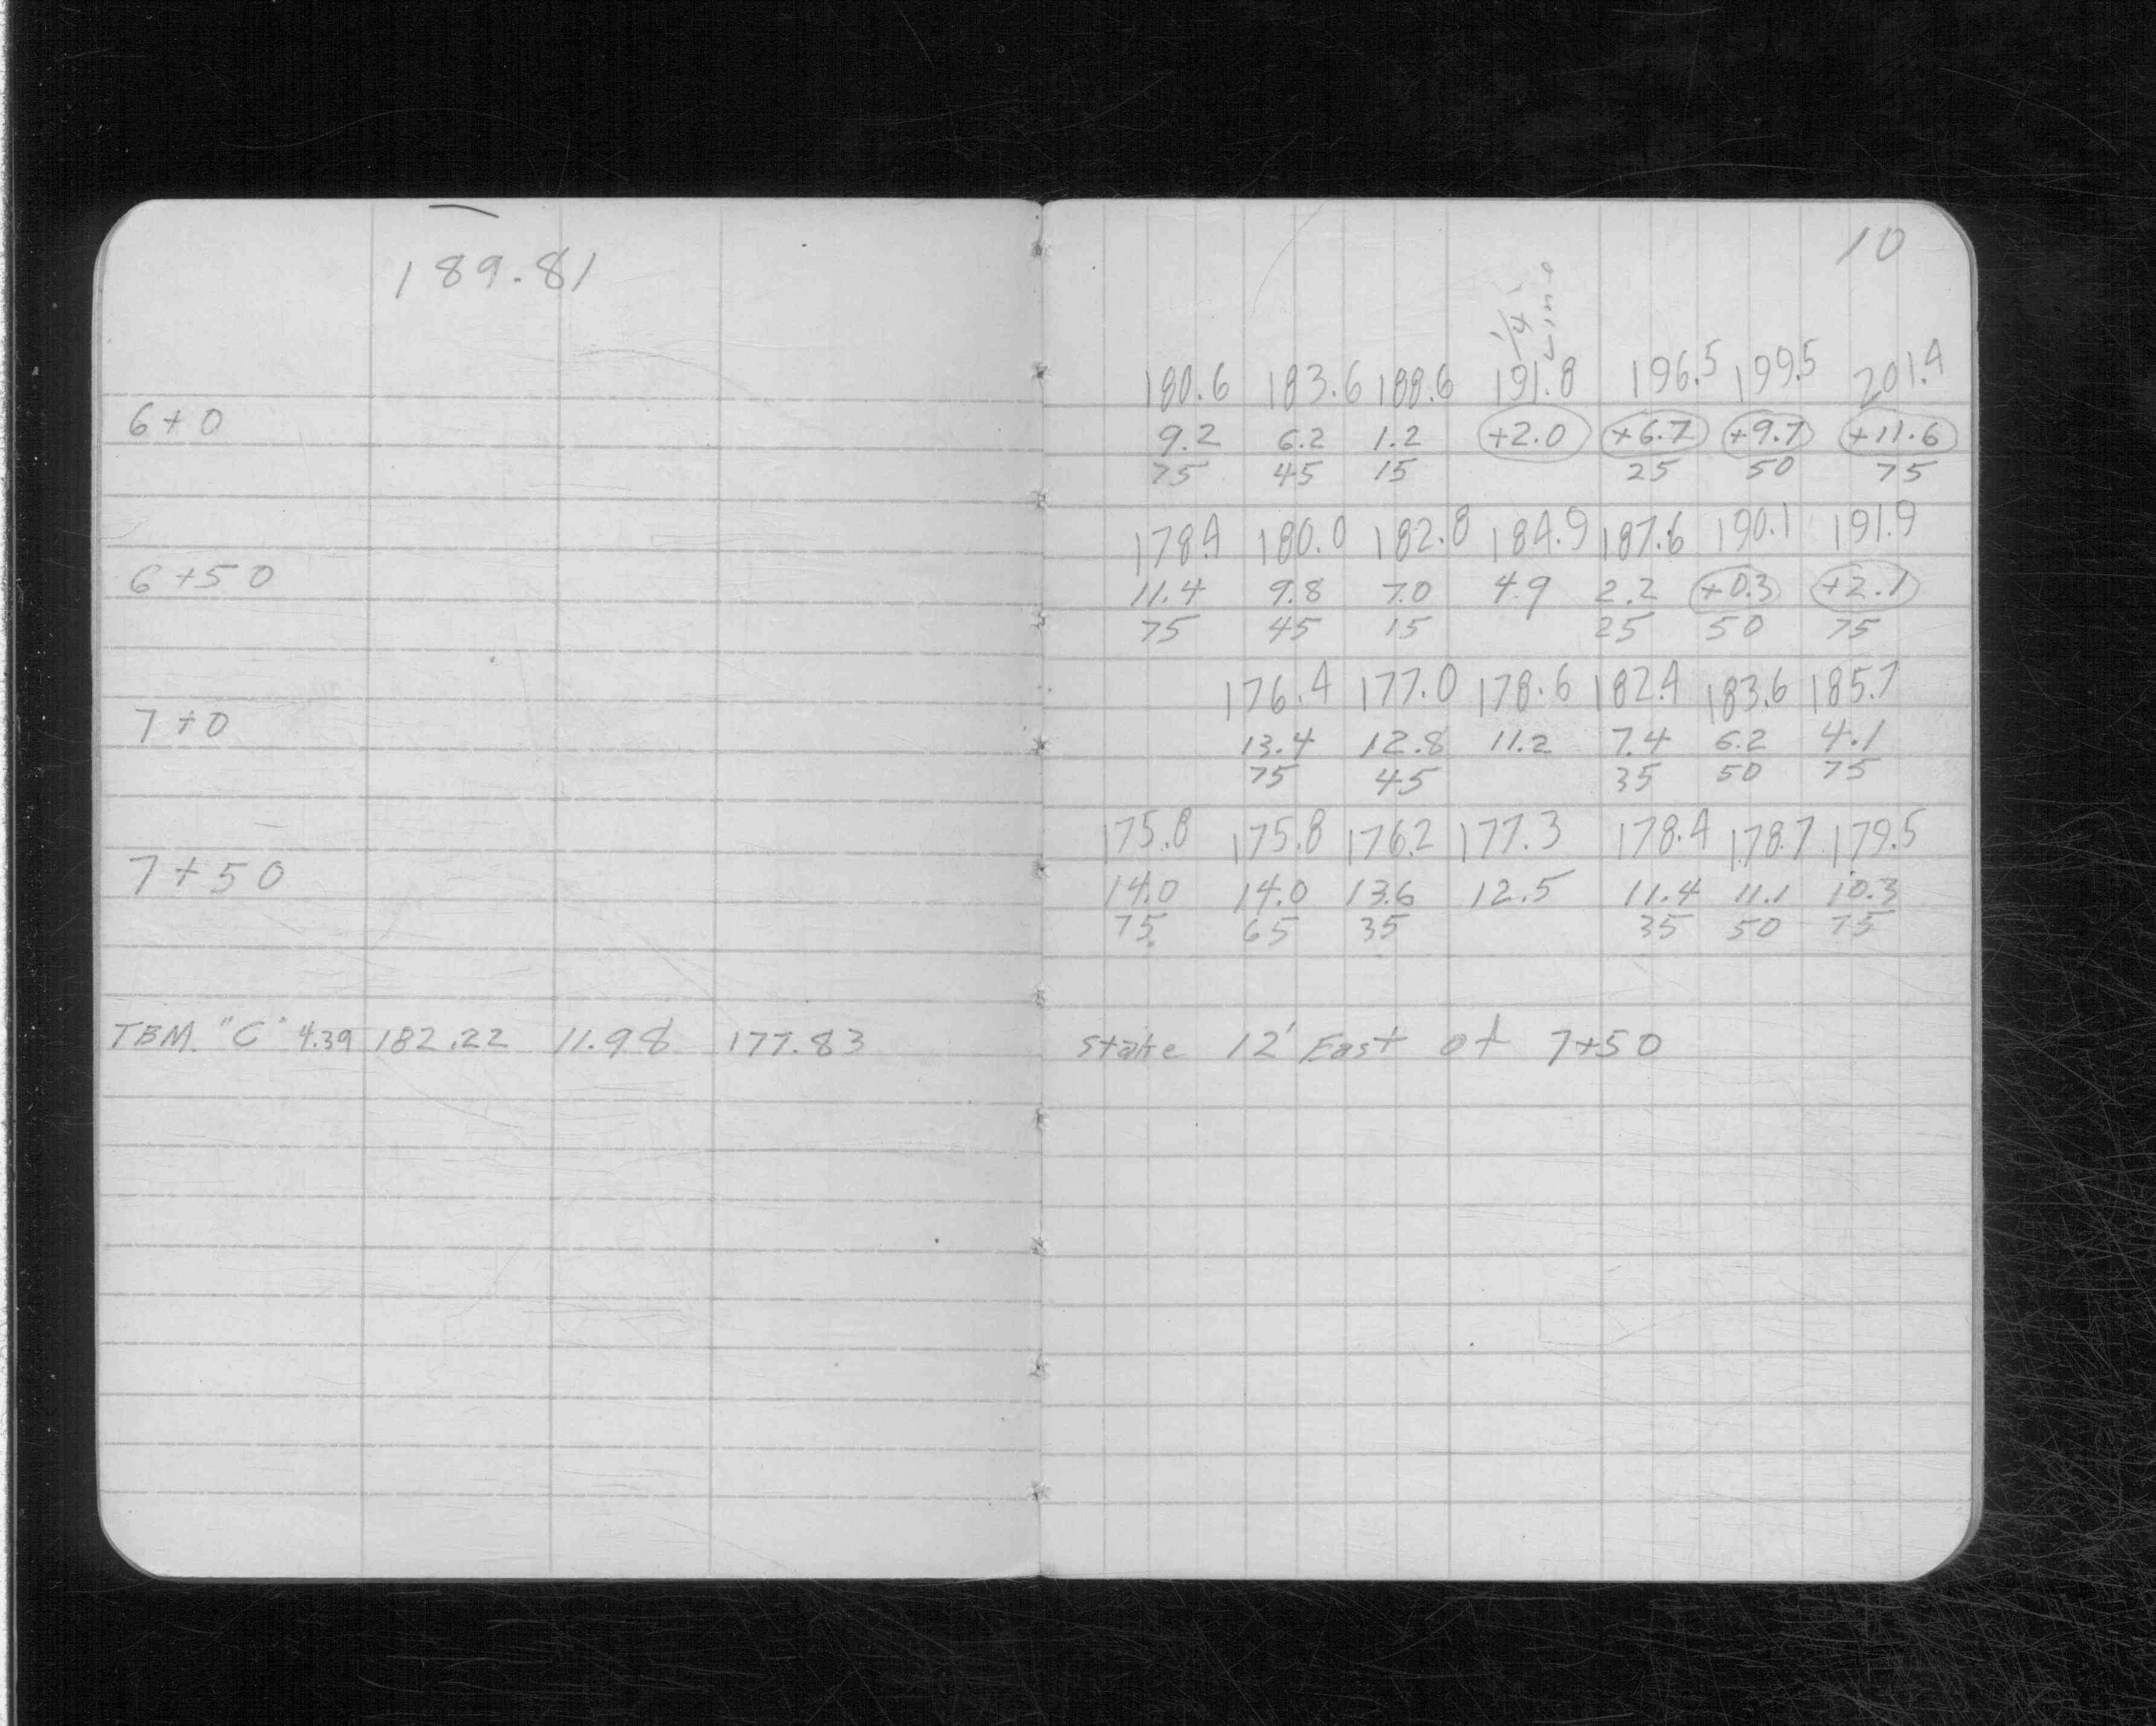 189.81
10
1/4 Line
180.6 183.6 188.6 191.8 196.5 199.5 201.4
6+0 9.2 6.2 1.2 +2.0 +6.7 +9.7 +11.6
75 45 15 25 50 75
178.4 180.0 182.8 184.9 187.6 190.1 191.9
6+50 11.4 9.8 7.0 4.9 2.2 +0.3 +2.1
75 45 15 25 50 75
176.4 177.0 178.6 182.4 183.6 185.7
7+0 13.4 12.8 11.2 7.4 6.2 4.1
75 45 35 50 75
175.8 175.8 176.2 177.3 178.4 178.7 179.5
7+50 14.0 14.0 13.6 12.5 11.4 11.1 10.3
75 65 35 35 50 75
TBM. "C" 4.39 182.22 11.98 177.83 Stake 12' East of 7+50